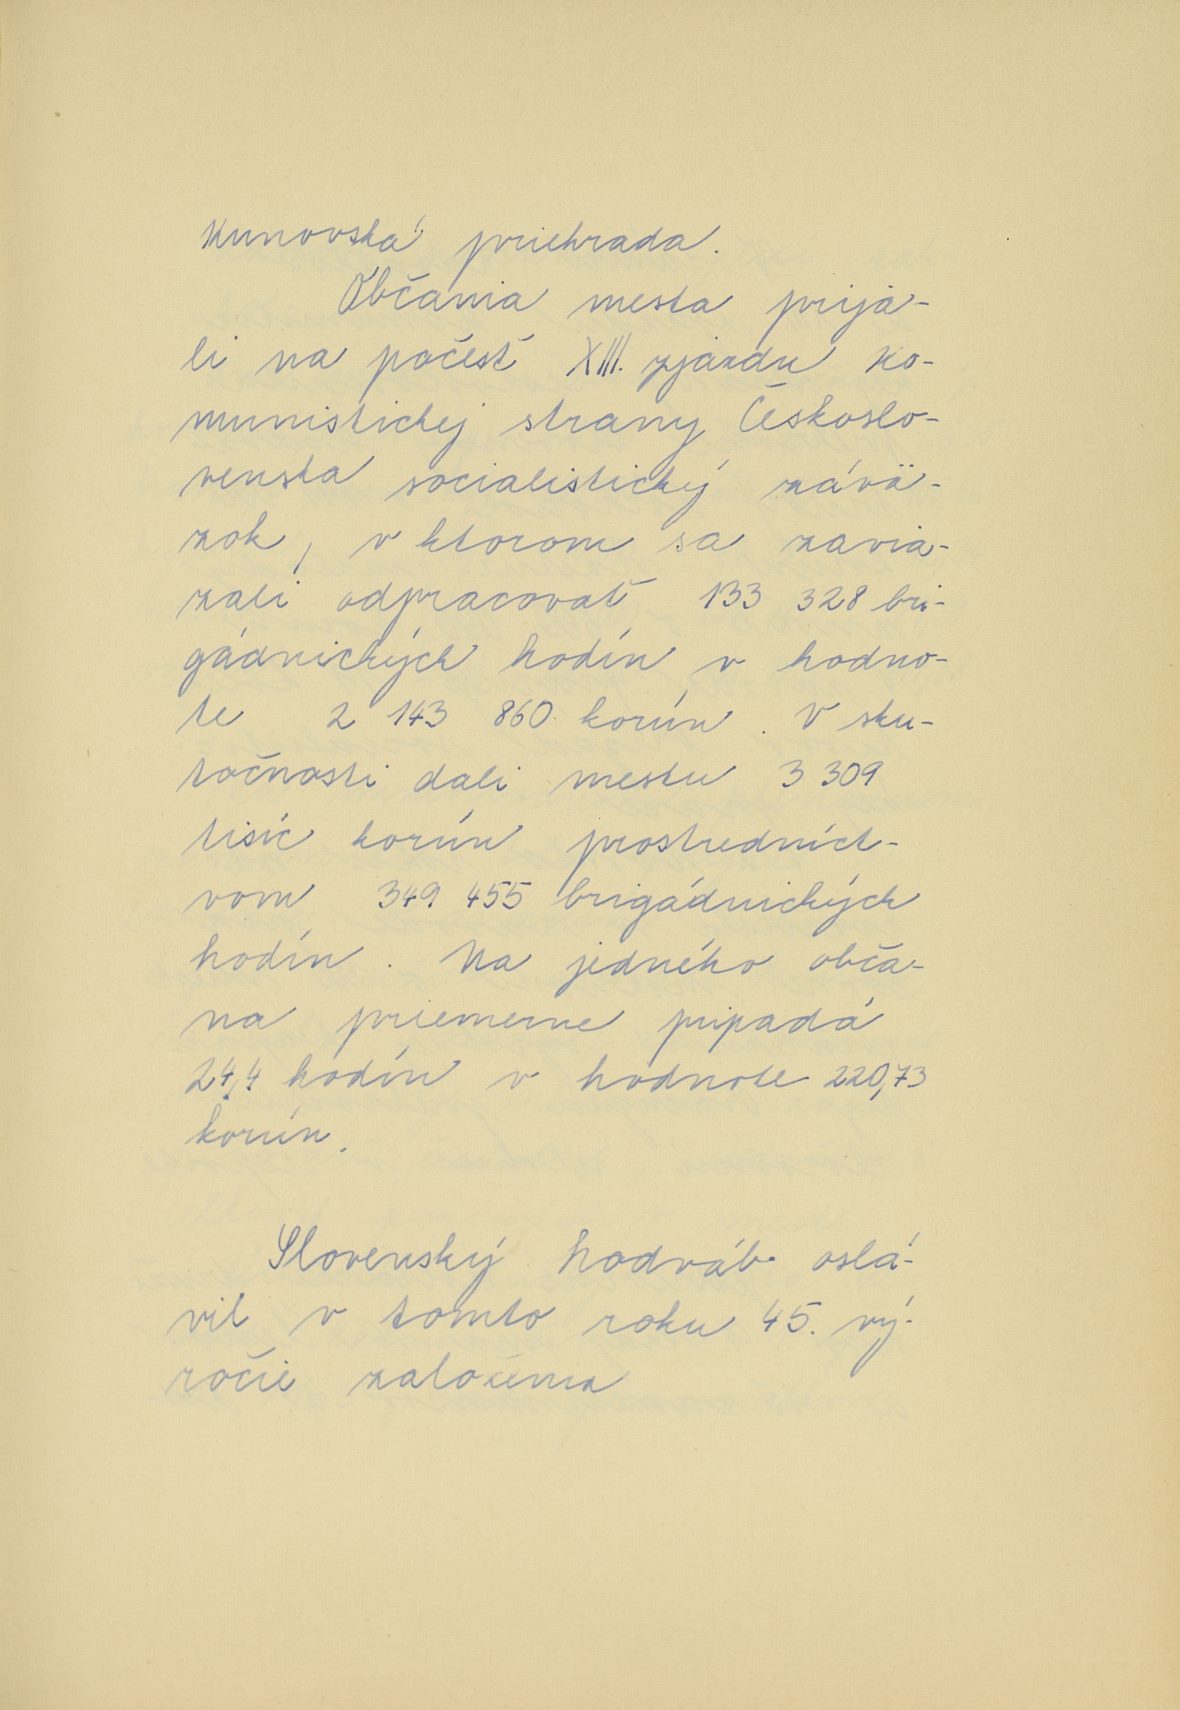 Kunovská priehrada.
Občania mesta prijá-
li na počesť XIII. zjazdu Ko-
munistickej strany Českoslo-
venska socialistický závä-
zok, v ktorom sa zavia-
zali odpracovať 133 328 bri-
gádnických hodín v hodno-
te 2 143 860 korún. V sku-
točnosti dali mestu 3 309
tisíc korún prostredníct-
vom 349 455 brigádnických
hodín. Na jedného obča-
na priemerne pripadá
24,4 hodín v hodnote 220,73
korún.
Slovenský hodváb oslá-
vil v tomto roku 45. vý-
ročie založenia